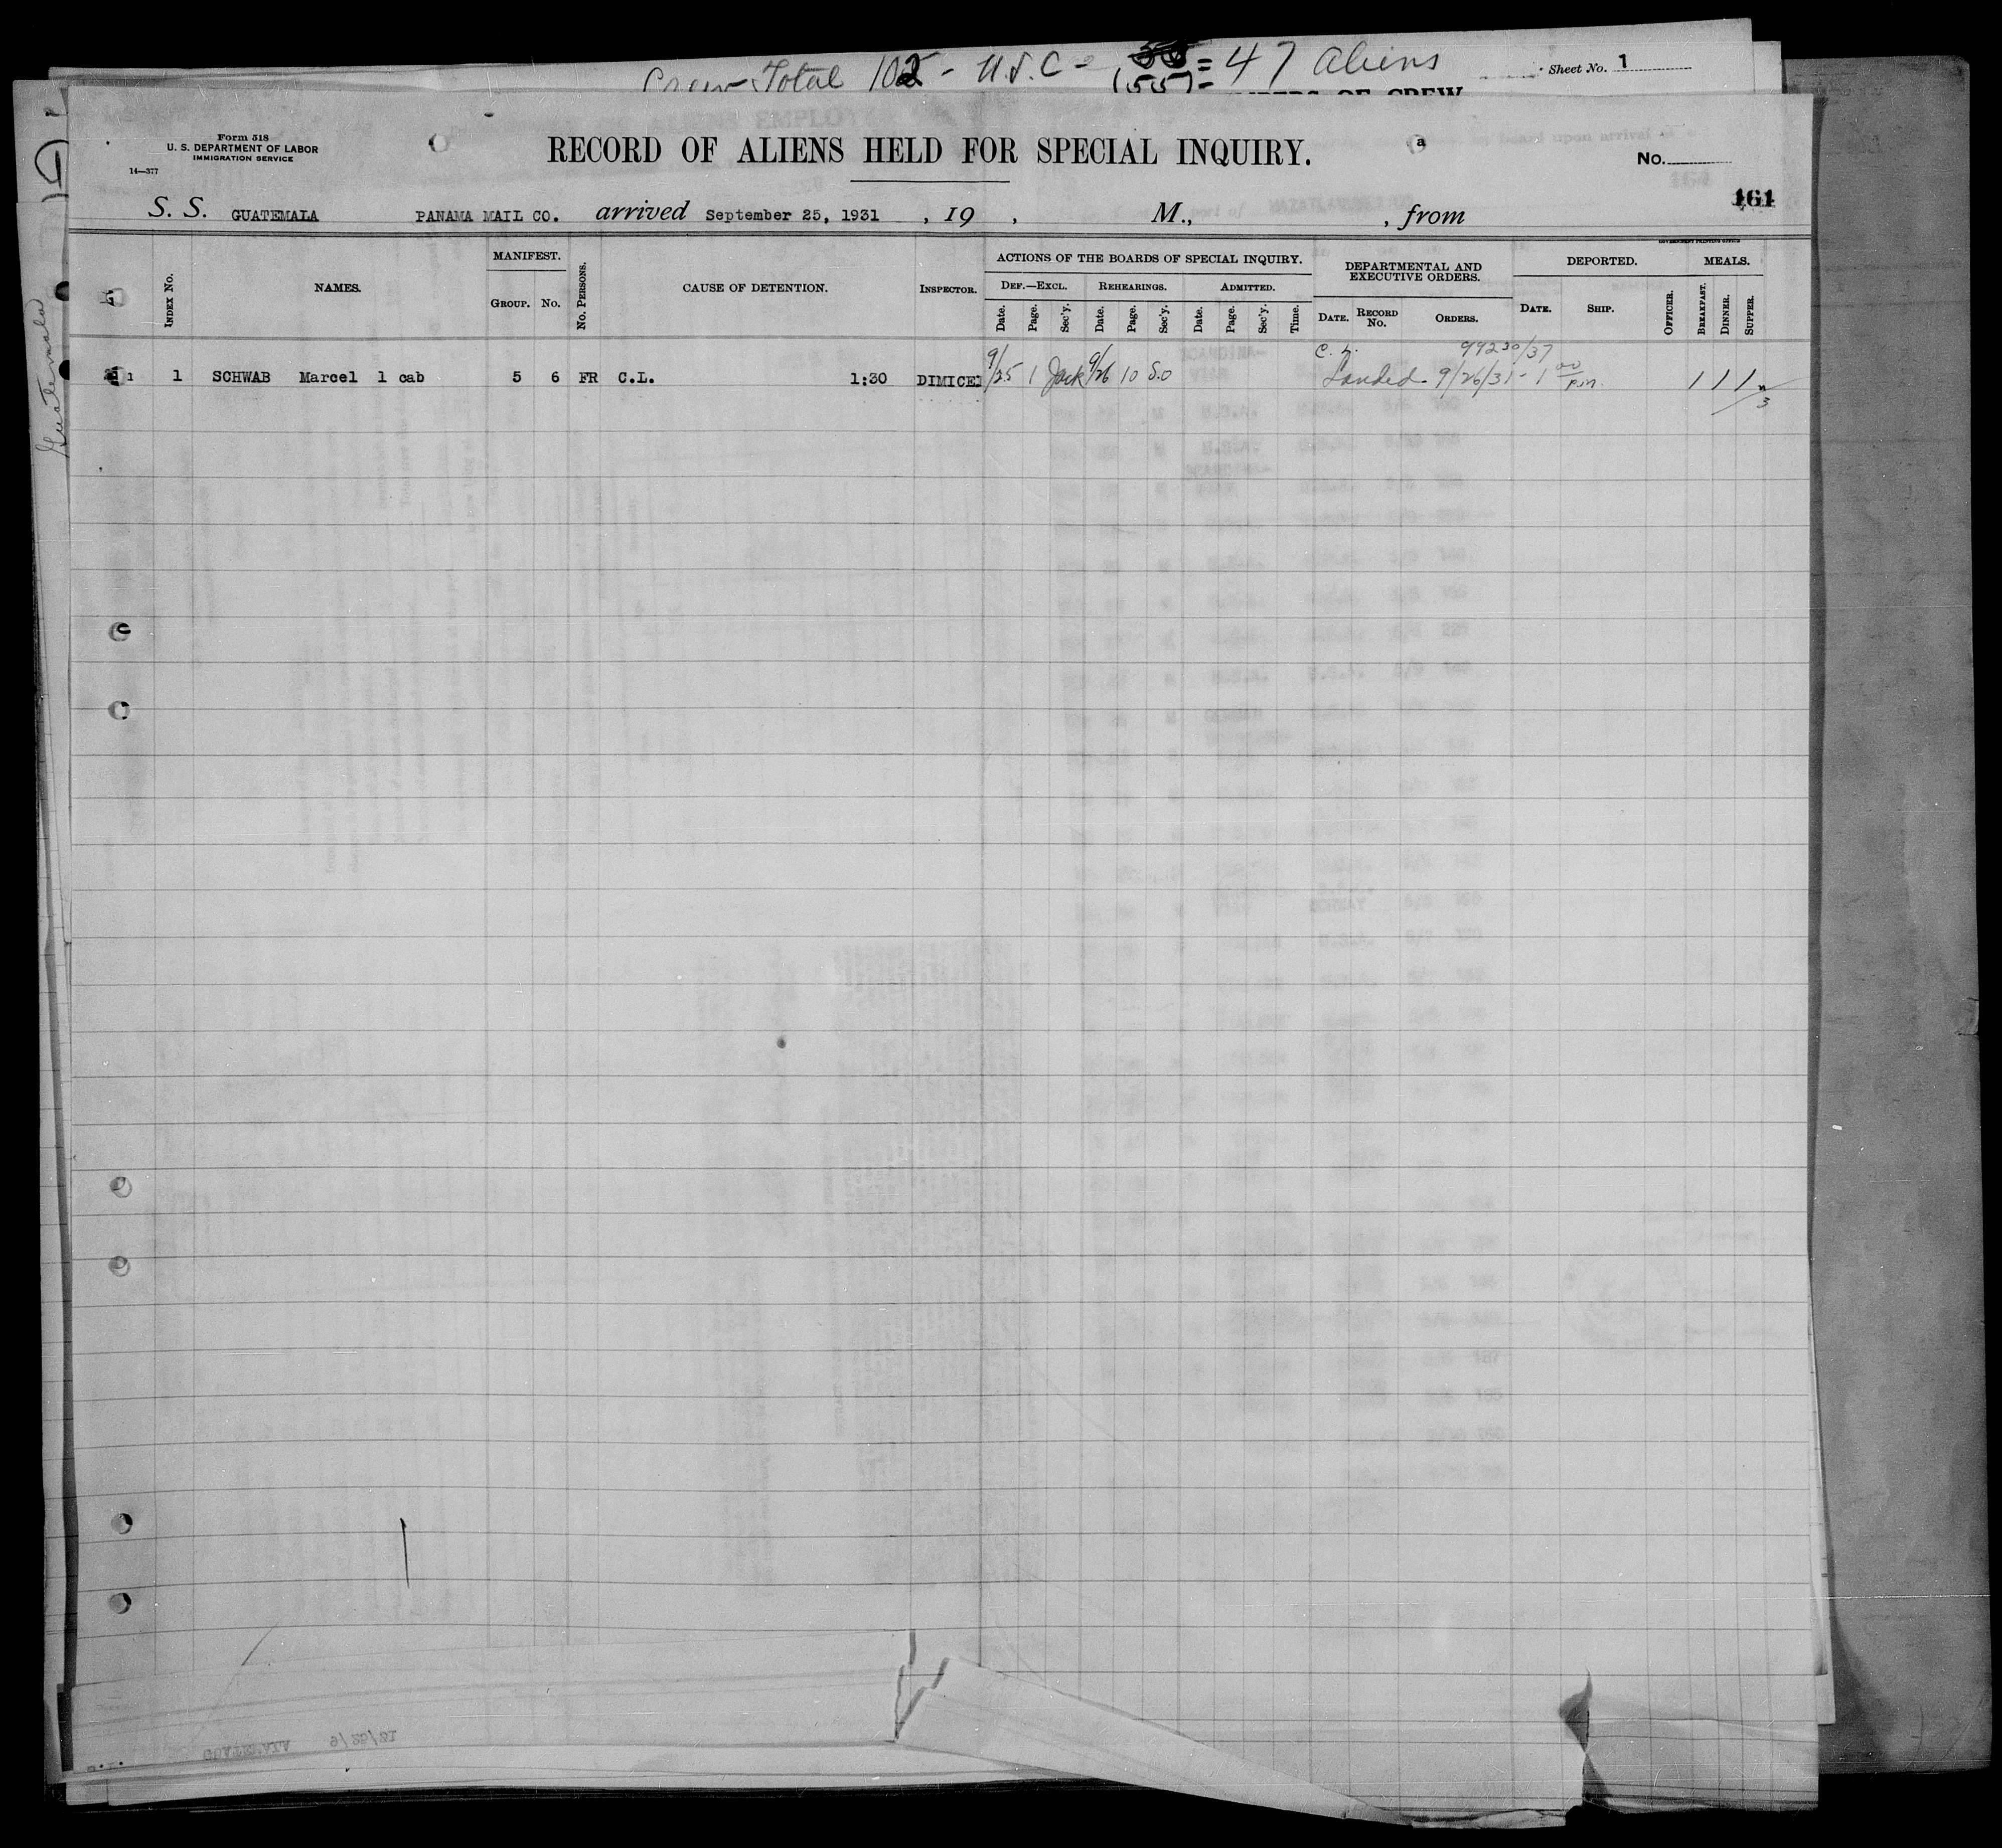 Crew Total 102 - U.S.C - (55) = 47 Aliens
Sheet No. 1
Form 518
U. S. DEPARTMENT OF LABOR
IMMIGRATION SERVICE
14—377
RECORD OF ALIENS HELD FOR SPECIAL INQUIRY.
a
No.
161
S. S. GUATEMALA PANAMA MAIL CO. arrived September 25, 1931 , 19 , M., , from
Guatemala
INDEX No.
NAMES.
MANIFEST.
GROUP. No.
No. PERSONS.
CAUSE OF DETENTION.
INSPECTOR.
ACTIONS OF THE BOARDS OF SPECIAL INQUIRY.
DEF.—EXCL. REHEARINGS. ADMITTED.
Date. Page. Sec'y. Date. Page. Sec'y. Date. Page. Sec'y. Time.
DEPARTMENTAL AND
EXECUTIVE ORDERS.
DATE. RECORD No. ORDERS.
GOVERNMENT PRINTING OFFICE
DEPORTED.
DATE. SHIP. OFFICER.
MEALS.
BREAKFAST. DINNER. SUPPER.
C. L. 99230/37
1 1 SCHWAB Marcel 1 cab 5 6 FR C.L. 1:30 DIMICEI 9/25 1 Jack 9/26 10 S.O Landed 9/26/31 - 1 00 pm. 1 1 1
3
GUATEMALA 9/25/31